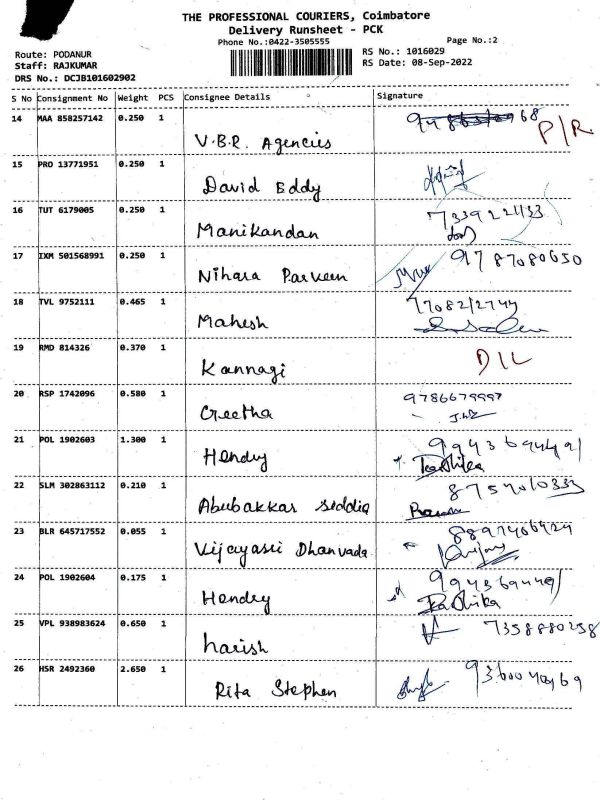 THE PROFESSIONAL COURIERS, Coimbatore
Delivery Runsheet - PCK
Phone No.:0422-3505555
Page No.:2
Route: PODANUR
Staff: RAJKUMAR
DRS No.: DCJB101602902
RS No.: 1016029
RS Date: 08-Sep-2022
S No Consignment No Weight PCS Consignee Details Signature
14 MAA 858257142 0.250 1 V.B.R. Agencies P/R
15 PRO 13771951 0.250 1 David Eddy
16 TUT 6179005 0.250 1 Manikandan
17 IXM 501568991 0.250 1 Nihara Parveen 9787080650
18 TVL 9752111 0.465 1 Mahesh
19 RMD 814326 0.370 1 Kannagi D/L
20 RSP 1742096 0.580 1 Geetha
21 POL 1902603 1.300 1 Hendry Radhika
22 SLM 302863112 0.210 1 Abubakkar Siddiq
23 BLR 645717552 0.055 1 Vijayasri Dhanvada
24 POL 1902604 0.175 1 Hendry Radhika
25 VPL 938983624 0.650 1 harish 7358880258
26 HSR 2492360 2.650 1 Rita Stephen